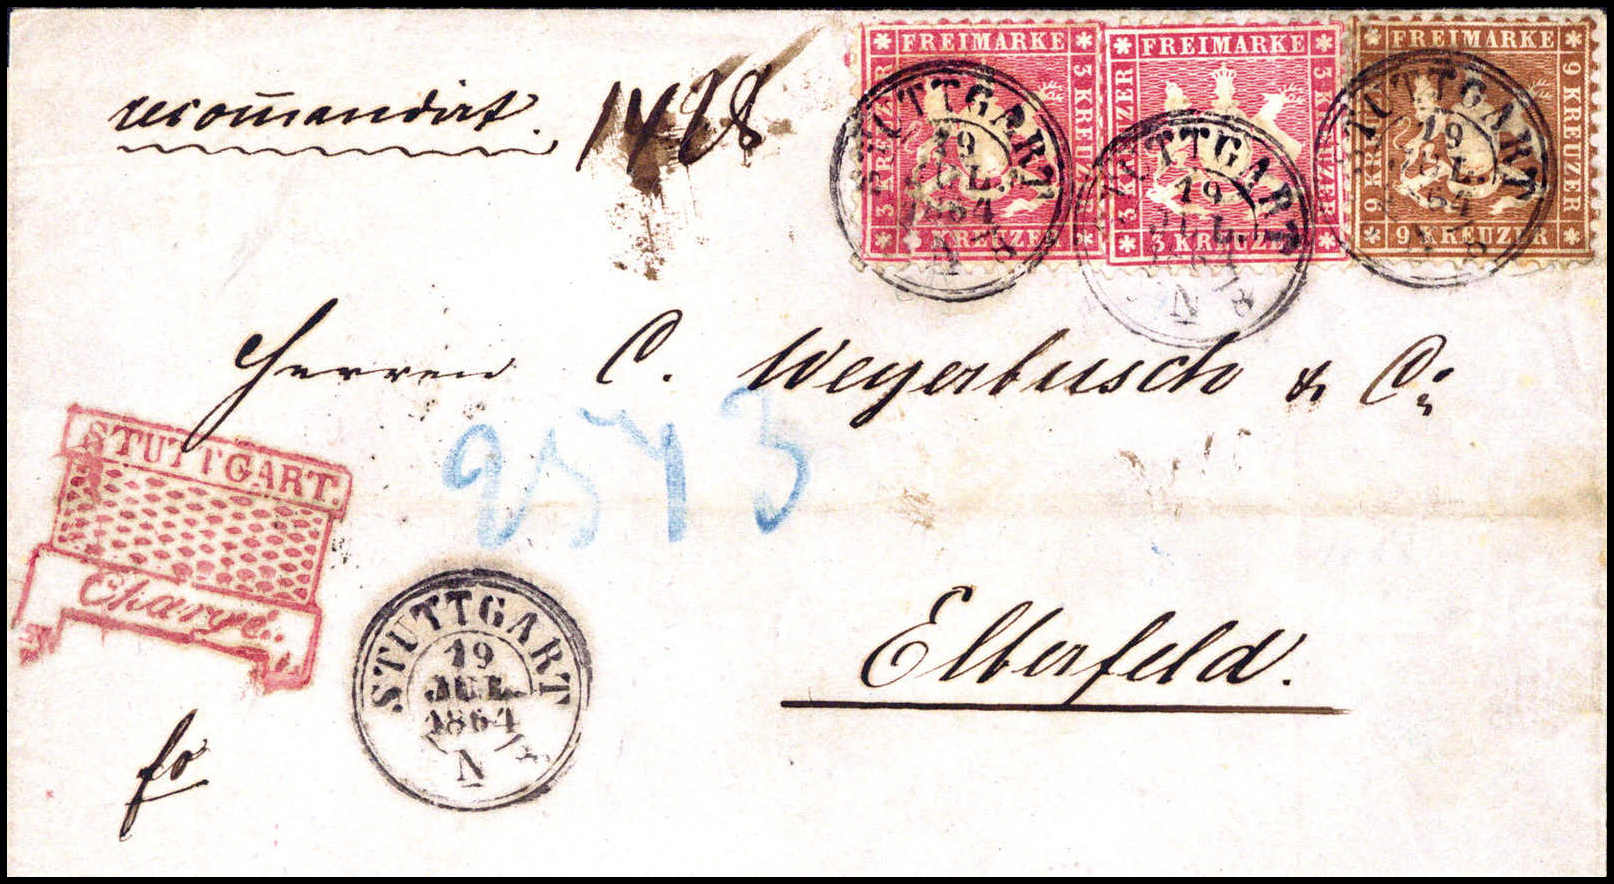 FREIMARKE
3 KREUZER
3 KREUZER
KREUZER
FREIMARKE
3 KREUZER
3 KREUZER
3 KREUZER
FREIMARKE
9 KREUZER
9 KREUZER
9 KREUZER
STUTTGART
19
JUL.
1864
N 8
STUTTGART
19
JUL.
1864
N 8
STUTTGART
19
JUL.
64
recom̅andirt. 1428
Herren C. Weyerbusch & C:
STUTTGART.
Chargé.
Elberfeld.
STUTTGART
19
JUL.
1864
N 8
fo